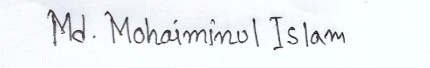 Md. Mohaiminul Islam